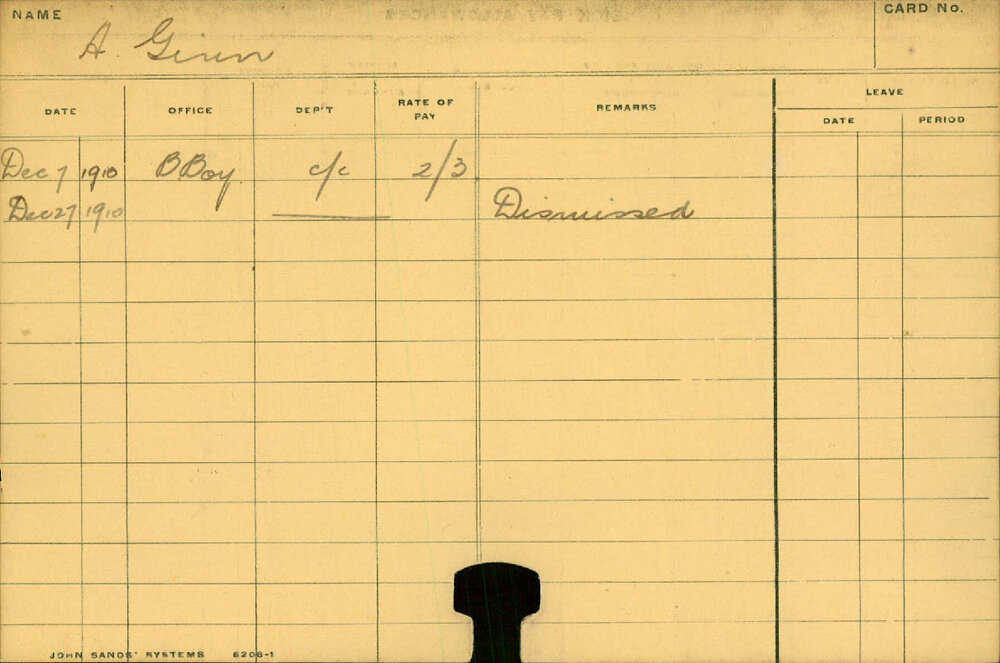 NAME
A. Ginn
CARD No.
DATE OFFICE DEP'T RATE OF PAY REMARKS LEAVE
DATE PERIOD
Dec 7 1910 B Boy c/c 2/3
Dec 27 1910 Dismissed
JOHN SANDS' SYSTEMS 6206-1